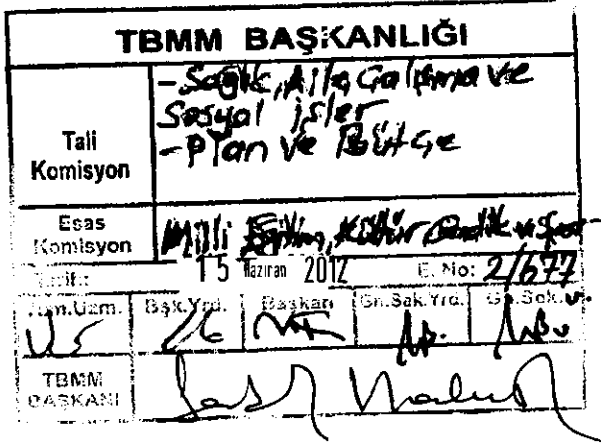 TBMM BAŞKANLIĞI
Tali Komisyon
-Sağlık, Aile, Çalışma ve
Sosyal İşler
-Plan ve Bütçe
Esas Komisyon
Milli Eğitim, Kültür Gençlik ve Spor
Tarihi: 15 Haziran 2012 E. No: 2/677
Uzm. Bşk.Yrd. Başkan Gn.Sek.Yrd. Gn.Sek.
TBMM BAŞKANI